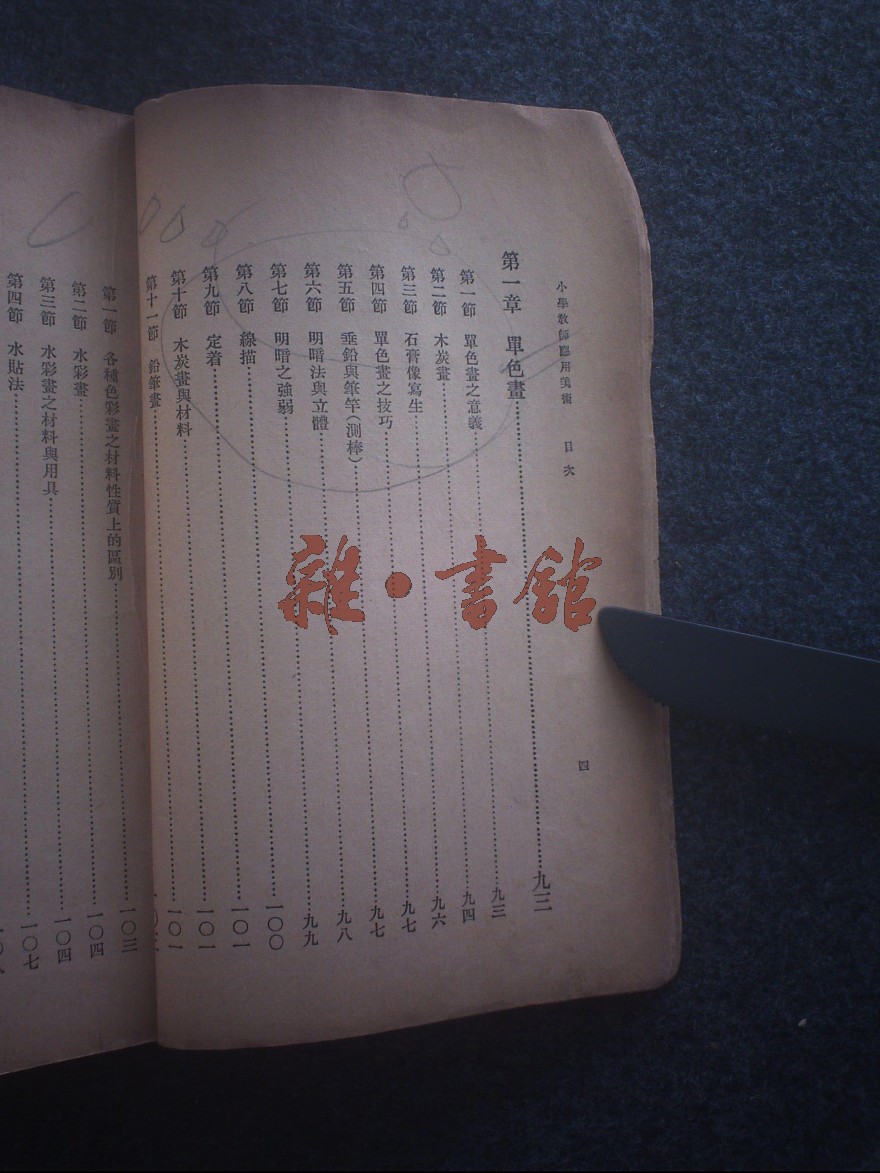 小學教師應用美術 目次 四
第一章 單色畫……九三
第一節 單色畫之意義……九三
第二節 木炭畫……九四
第三節 石膏像寫生……九六
第四節 單色畫之技巧……九七
第五節 垂鉛與筆竿(測棒)……九七
第六節 明暗法與立體……九八
第七節 明暗之強弱……九九
第八節 線描……一〇〇
第九節 定着……一〇一
第十節 木炭畫與材料……一〇一
第十一節 鉛筆畫……一〇一
第一節 各種色彩畫之材料性質上的區別……一〇三
第二節 水彩畫……一〇四
第三節 水彩畫之材料與用具……一〇四
第四節 水貼法……一〇七
雜·書館